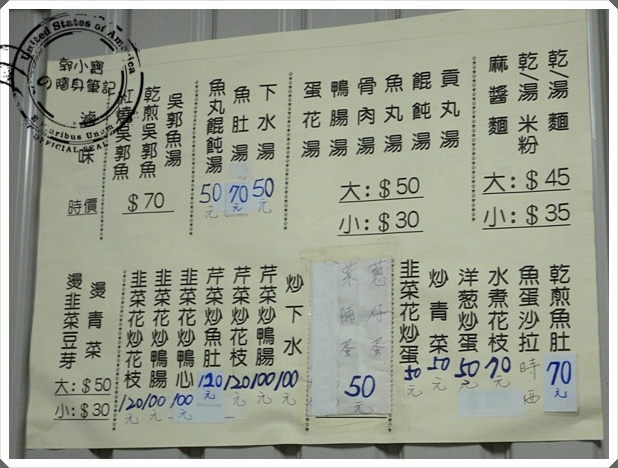 乾/湯 麵
乾/湯 米粉
麻醬麵
大：$45
小：$35
貢丸湯
餛飩湯
魚丸湯
骨肉湯
鴨腸湯
蛋花湯
大：$50
小：$30
下水湯
50元
魚肚湯
70元
魚丸餛飩湯
50元
吳郭魚湯
乾煎吳郭魚
紅燒吳郭魚
$70
滷味
時價
乾煎魚肚
70元
魚蛋沙拉
時
水煮花枝
70元
洋葱炒蛋
50元
炒青菜
50元
韭菜花炒蛋
50元
蔥仔蛋
菜脯蛋
50元
炒下水
100元
芹菜炒鴨腸
100元
芹菜炒花枝
120元
芹菜炒魚肚
120元
韭菜花炒鴨心
100元
韭菜花炒鴨腸
100元
韭菜花炒花枝
120元
燙青菜
燙韭菜豆芽
大：$50
小：$30
United States of America
郭小寶
の隨身筆記
E Pluribus Unum
OFFICIAL SEAL